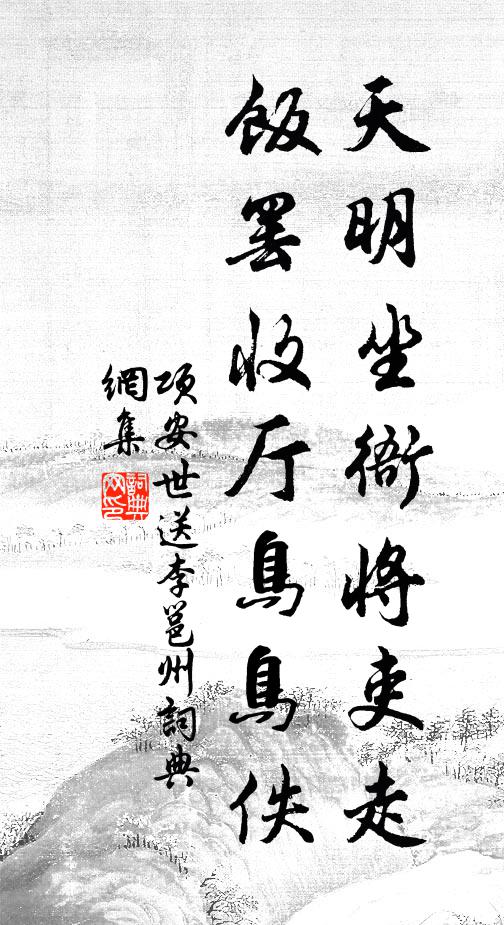 天明坐衙將吏走
飯罷收厅鳥鳥佚
項安世送李邕州詞典
網集
詞典
网印